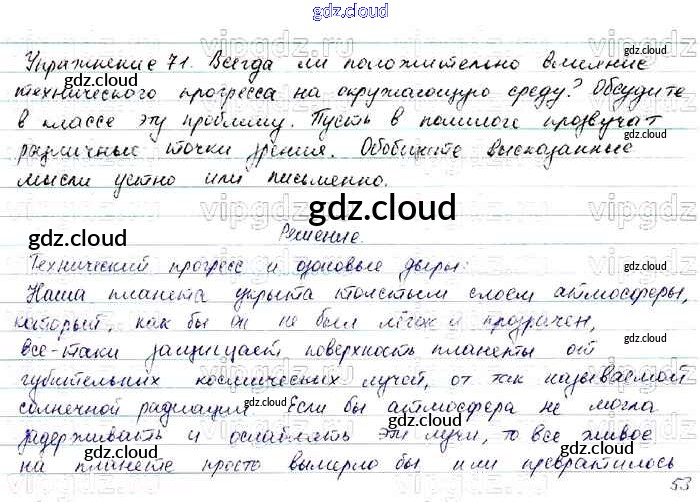 gdz.cloud
Упражнение 71. Всегда ли положительно влияние
технического прогресса на окружающую среду? Обсудите
в классе эту проблему. Пусть в полилоге прозвучат
различные точки зрения. Обобщите высказанные
мысли устно или письменно.
gdz.cloud
Решение.
Технический прогресс и озоновые дыры:
Наша планета укрыта толстым слоем атмосферы,
который, как бы он не был лёгок и прозрачен,
всё-таки защищает поверхность планеты от
губительных космических лучей, от так называемой
солнечной радиации. Если бы атмосфера не могла
задерживать и ослаблять эти лучи, то все живое
на планете просто вымерло бы или превратилось
53